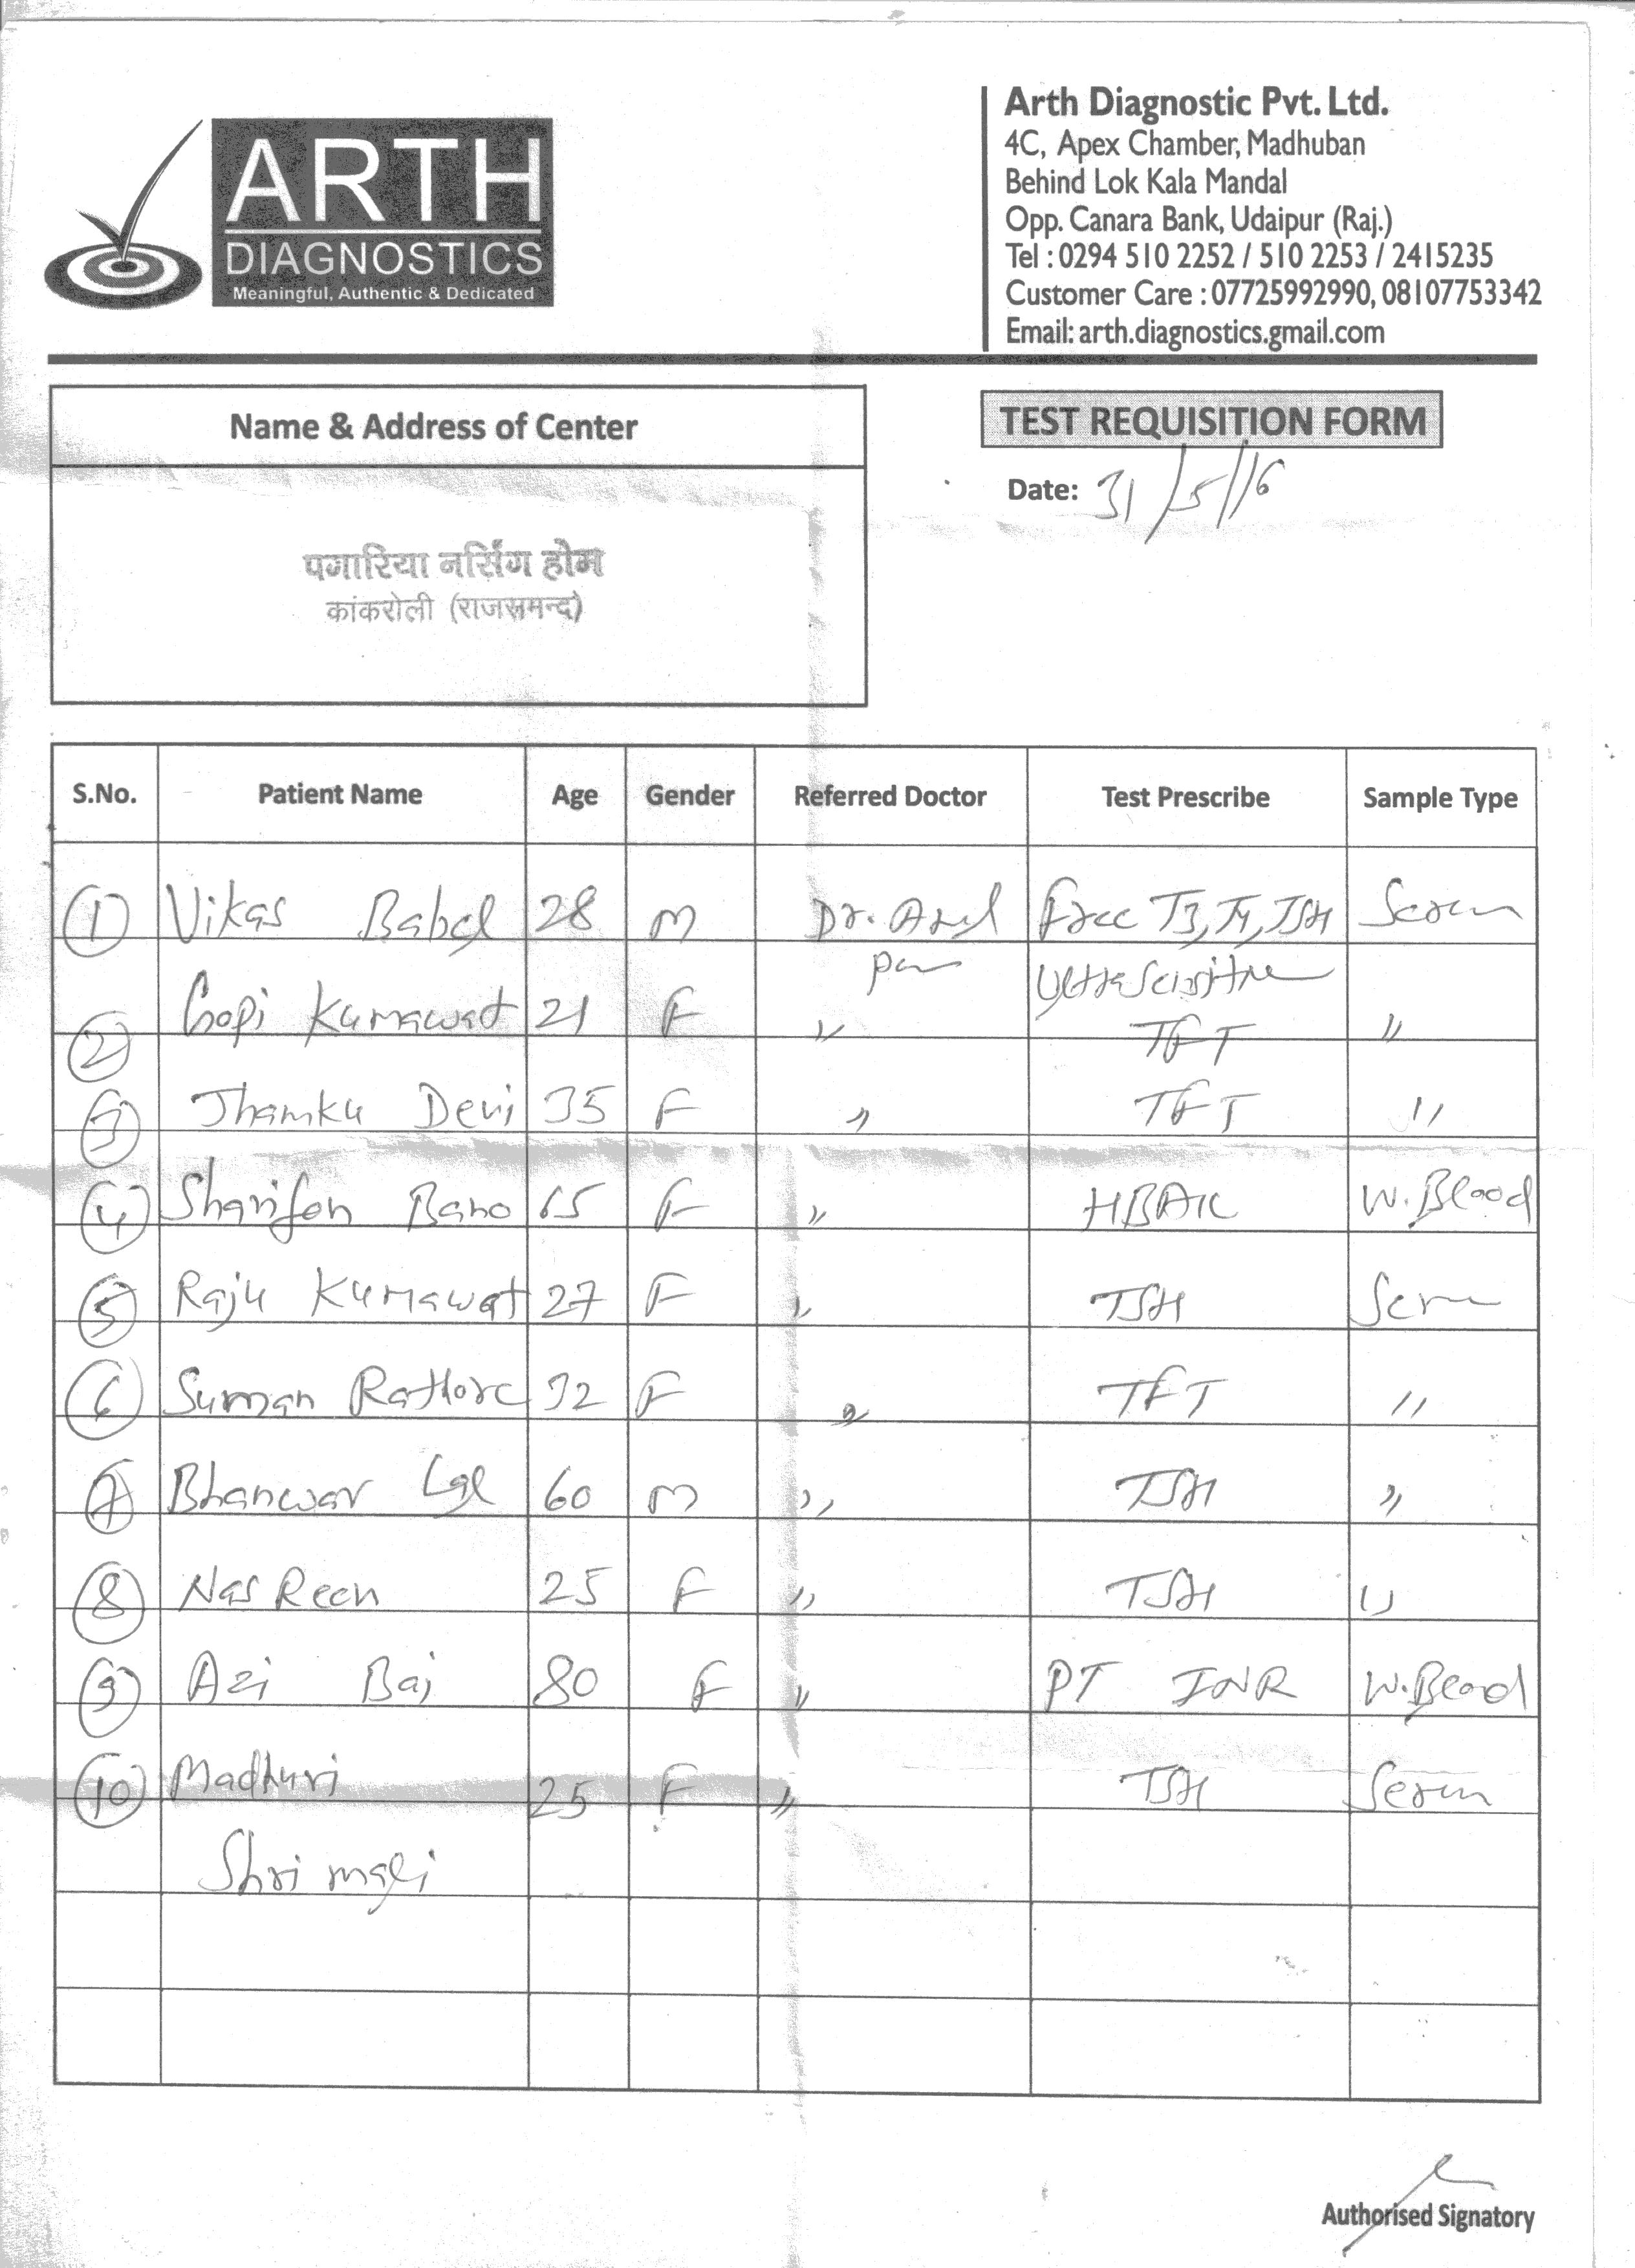 ARTH
DIAGNOSTICS
Meaningful, Authentic & Dedicated
Arth Diagnostic Pvt. Ltd.
4C, Apex Chamber, Madhuban
Behind Lok Kala Mandal
Opp. Canara Bank, Udaipur (Raj.)
Tel : 0294 510 2252 / 510 2253 / 2415235
Customer Care : 07725992990, 08107753342
Email: arth.diagnostics.gmail.com
Name & Address of Center
TEST REQUISITION FORM
Date: 31/5/16
पगारिया नर्सिंग होम
कांकरोली (राजसमन्द)
S.No. Patient Name Age Gender Referred Doctor Test Prescribe Sample Type
1 Vikas Babel 28 M Dr. Free T3, T4, TSH Serum
Ultrasensitive
2 Gopi Kumawat 21 F " TFT "
3 Jhamku Devi 35 F " TFT "
4 Sharifan Bano 65 F " HBA1C W. Blood
5 Raju Kumawat 27 F " TSH Serum
6 Suman Rathore 32 F " TFT "
7 Bhanwar Lal 60 M " TSH "
8 NasReen 25 F " TSH "
9 Azi Bai 80 F " PT INR W. Blood
10 Madhuri 25 F " TSH Serum
Shrimali
Authorised Signatory